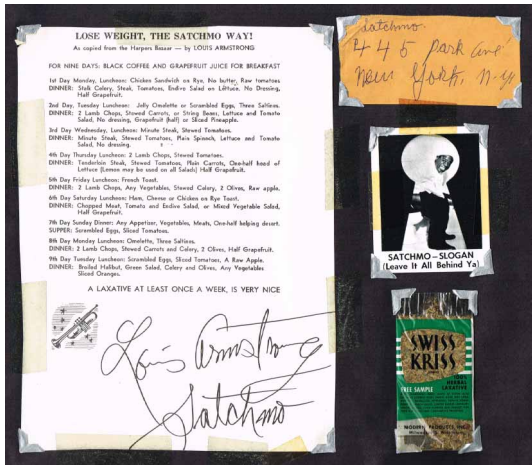 LOSE WEIGHT, THE SATCHMO WAY!
As copied from the Harpers Bazaar — by LOUIS ARMSTRONG
FOR NINE DAYS: BLACK COFFEE AND GRAPEFRUIT JUICE FOR BREAKFAST
1st Day Monday, Luncheon: Chicken Sandwich on Rye, No butter, Raw tomatoes
DINNER: Stalk Celery, Steak, Tomatoes, Endive Salad on Lettuce, No Dressing,
Half Grapefruit.
2nd Day, Tuesday Luncheon: Jelly Omelette or Scrambled Eggs, Three Saltines.
DINNER: 2 Lamb Chops, Stewed Carrots, or String Beans, Lettuce and Tomato
Salad, No dressing, Grapefruit (half) or Sliced Pineapple.
3rd Day Wednesday, Luncheon: Minute Steak, Stewed Tomatoes.
DINNER: Minute Steak, Stewed Tomatoes, Plain Spinach, Lettuce and Tomato
Salad, No dressing.
4th Day Thursday Luncheon: 2 Lamb Chops, Stewed Tomatoes.
DINNER: Tenderloin Steak, Stewed Tomatoes, Plain Carrots, One-half head of
Lettuce (Lemon may be used on all Salads) Half Grapefruit.
5th Day Friday Luncheon: French Toast.
DINNER: 2 Lamb Chops, Any Vegetables, Stewed Celery, 2 Olives, Raw apple.
6th Day Saturday Luncheon: Ham, Cheese or Chicken on Rye Toast.
DINNER: Chopped Meat, Tomato and Endive Salad, or Mixed Vegetable Salad,
Half Grapefruit.
7th Day Sunday Dinner: Any Appetizer, Vegetables, Meats, One-half helping desert.
SUPPER: Scrambled Eggs, Sliced Tomatoes.
8th Day Monday Luncheon: Omelette, Three Saltines.
DINNER: 2 Lamb Chops, Stewed Carrots and Celery, 2 Olives, Half Grapefruit.
9th Day Tuesday Luncheon: Scrambled Eggs, Sliced Tomatoes, A Raw Apple.
DINNER: Broiled Halibut, Green Salad, Celery and Olives, Any Vegetables
Sliced Oranges.
A LAXATIVE AT LEAST ONCE A WEEK, IS VERY NICE
Louis Armstrong
Satchmo
Satchmo
445 Park Ave
New York, N.Y
SATCHMO—SLOGAN
(Leave It All Behind Ya)
SWISS
KRISS
HERBAL
LAXATIVE
FREE SAMPLE
MODERN PRODUCTS INC.